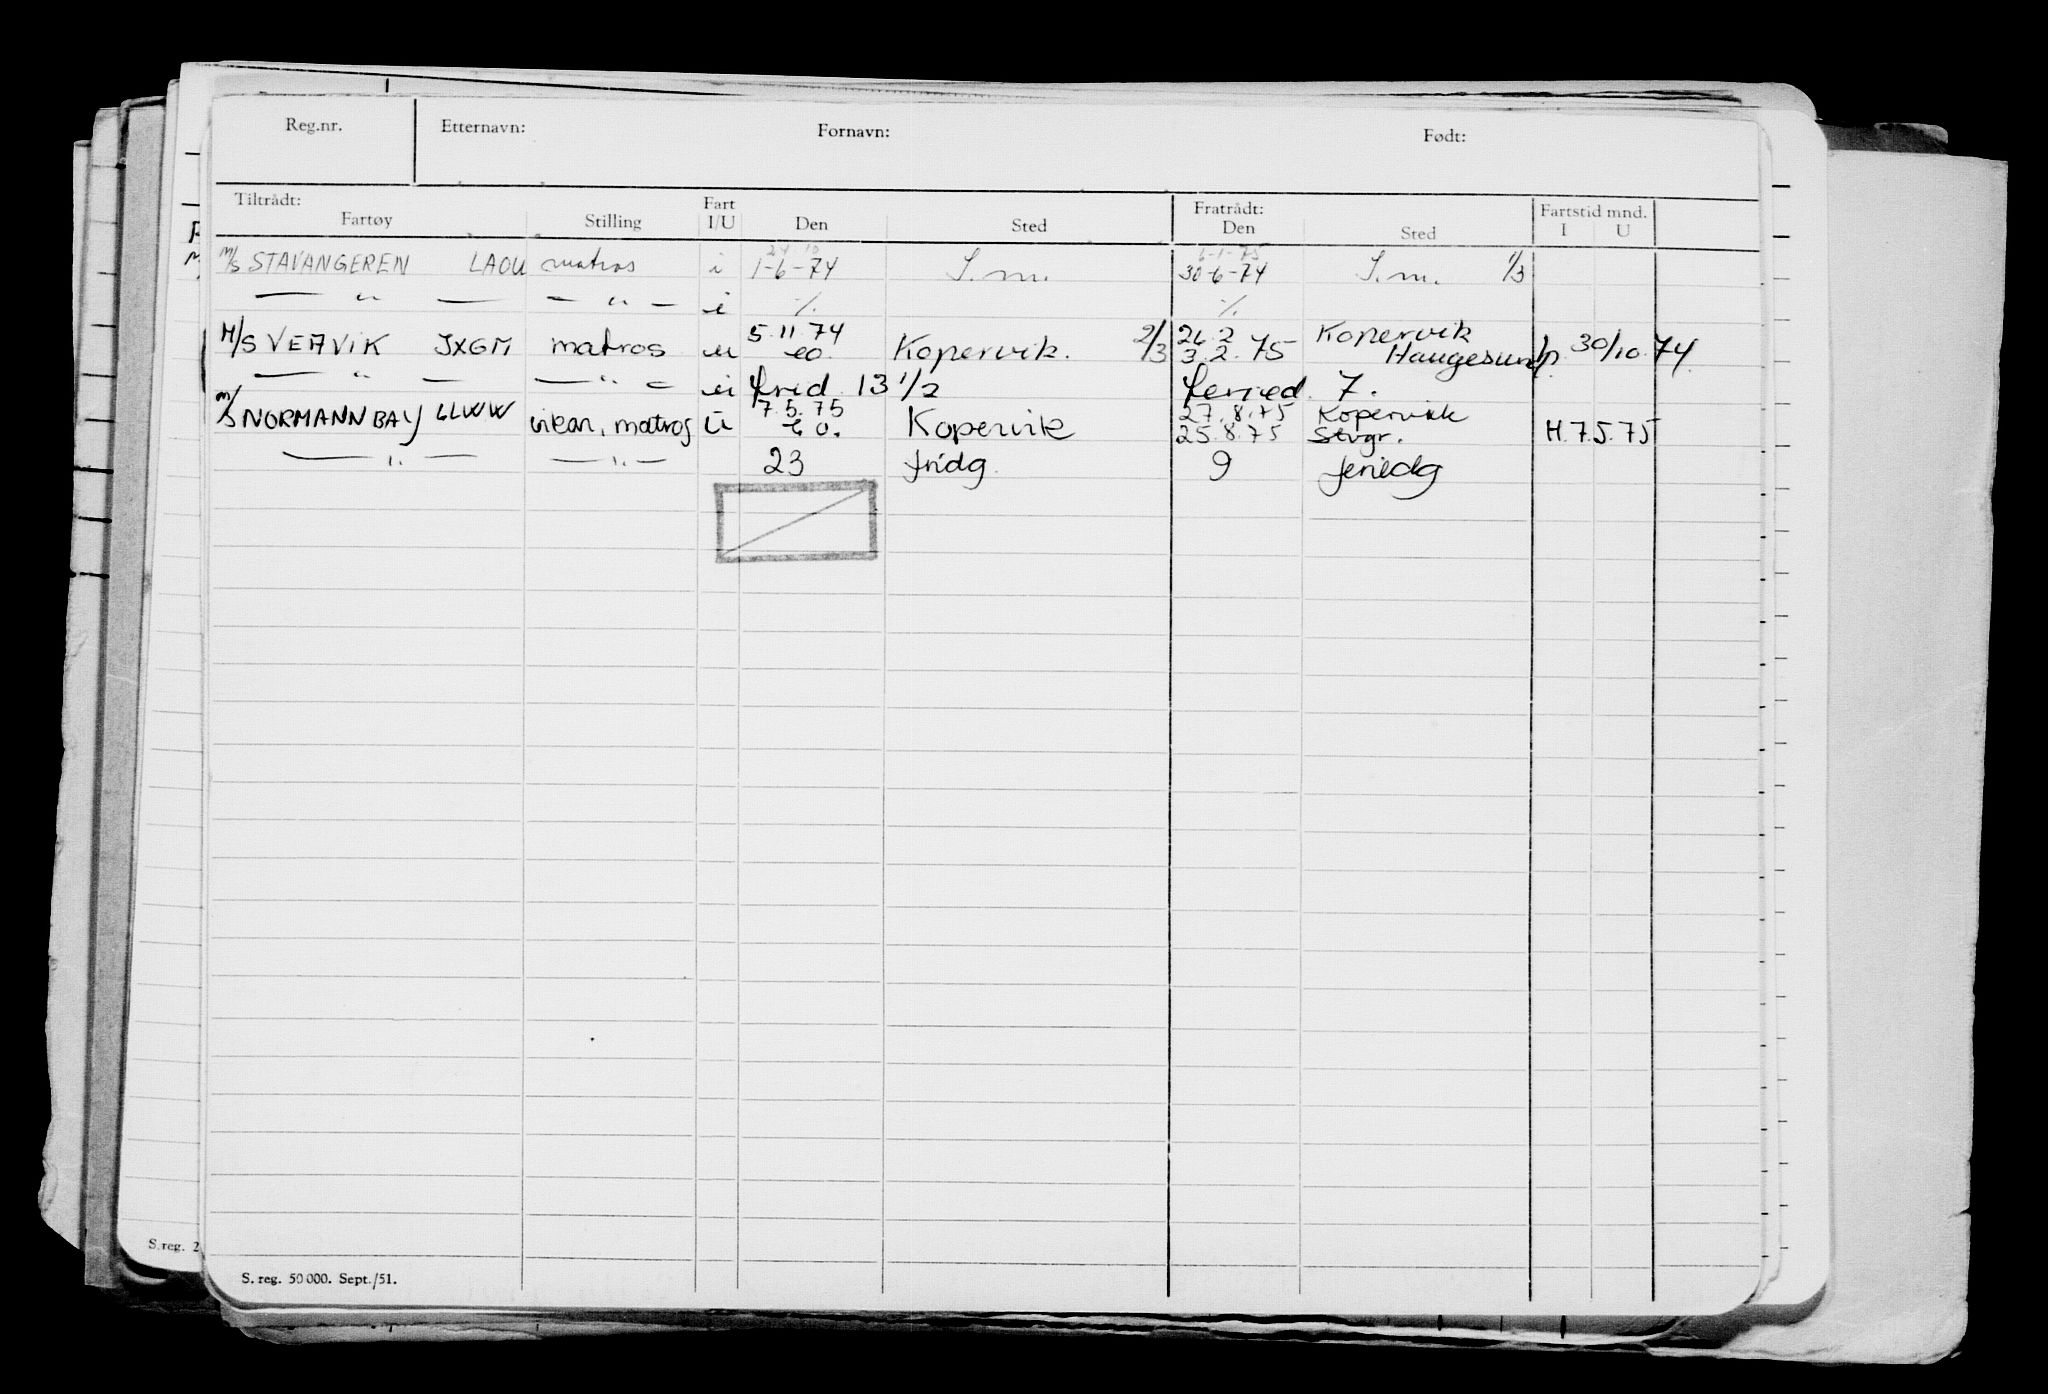 Reg.nr. Etternavn: Fornavn: Født:
Tiltrådt: Fart Fratrådt: Fartstid mnd.
Fartøy Stilling I/U Den Sted Den Sted I U
24 10 6-1-75
M/S STAVANGEREN LAOU matros i 1-6-74 S.m. 30-6-74 S.m. 1/3
— " — — " — i % %
5.11.74 2/3 26.2 Kopervik
M/S VEAVIK JXGM matros u eo. Kopervik. 3.2.75 Haugesund p. 30/10.74.
— " — — " — frid. 13 1/2 feried. 7.
7.5.75 27.8.75 Kopervik
M/S NORMANNBAY LLWW vikar, matros U e o. Kopervik 25.8.75 Stvgr. H.7.5.75
— " — — " — 23 fridg. 9 feriedg
S. reg. 2
S. reg. 50 000. Sept./51.